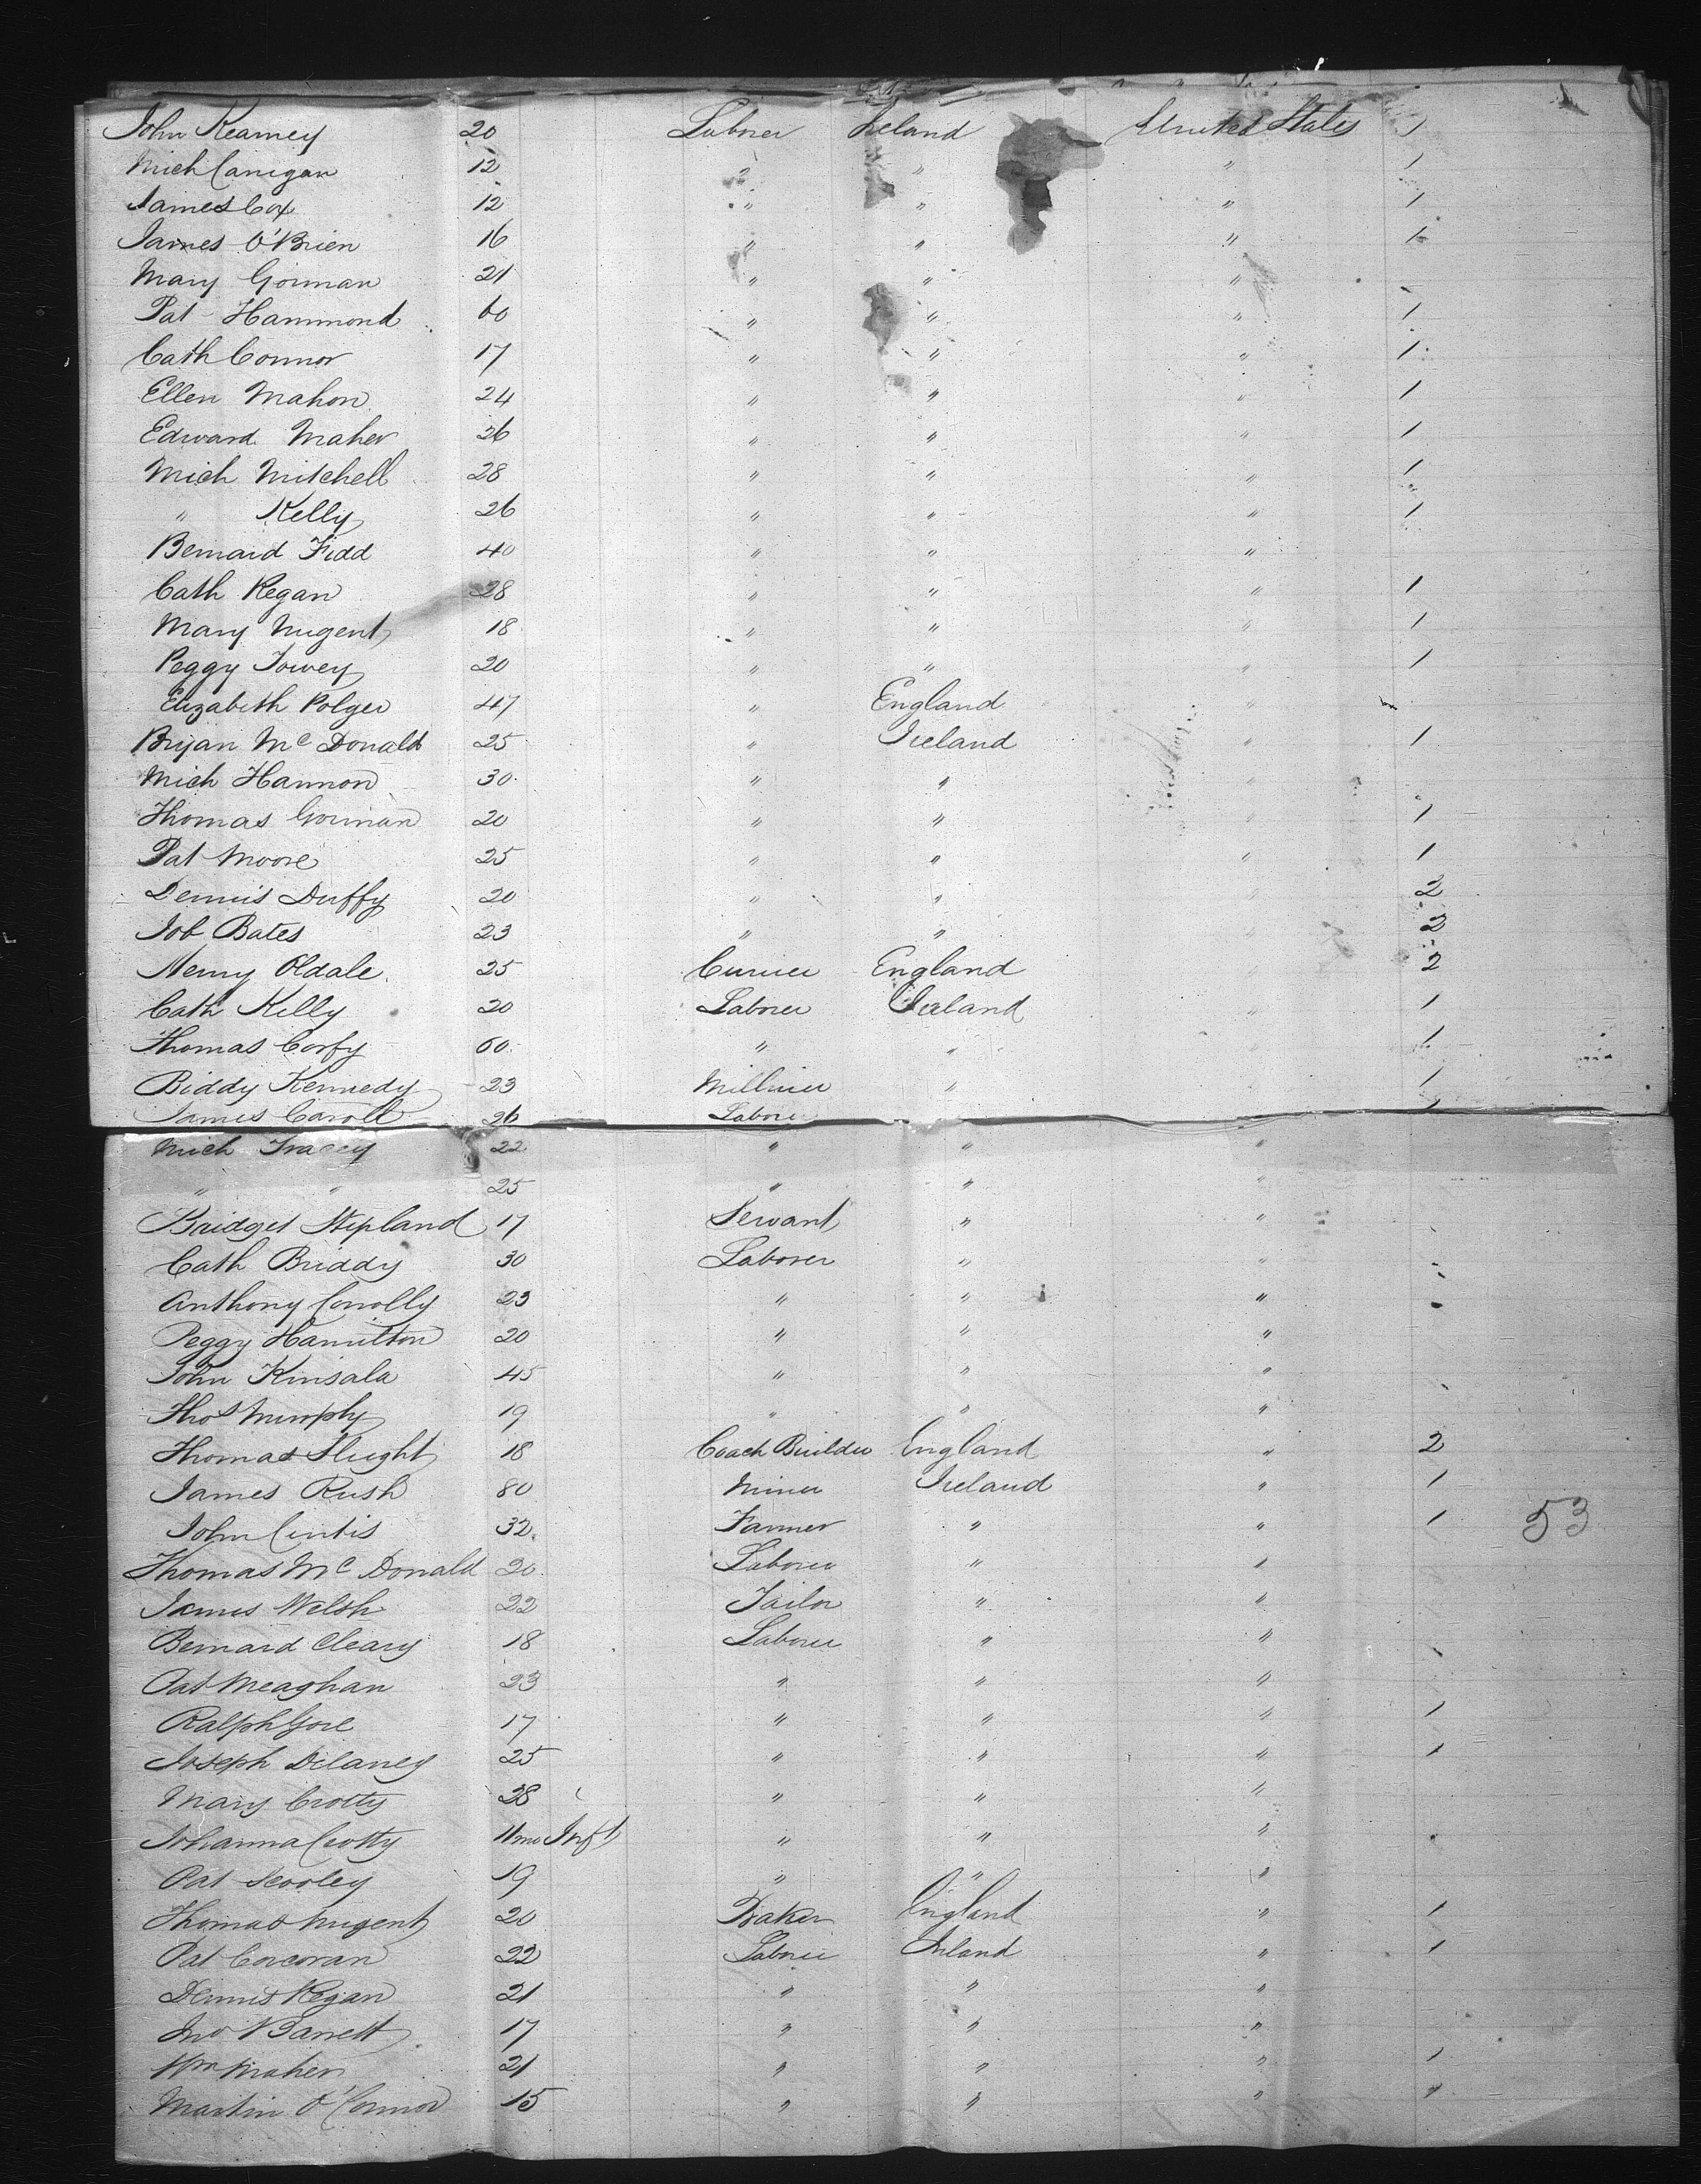 John Kearney 20 Laborer Ireland United States 1
Mich Canigan 12 " " " 1
James Cox 12 " " " 1
James O'Brien 16 " " " 1
Mary Gorman 21 " " "
Pat Hammond 60 " " " 1
Cath Connor 17 " " " 1
Ellen Mahon 24 " " " 1
Edward Maher 26 " " " 1
Mich Mitchell 28 " " " 1
" Kelly 26 " " " 1
Bernard Fidd 40 " " "
Cath Regan 28 " " " 1
Mary Nugent 18 " " " 1
Peggy Towey 20 " " " 1
Elizabeth Polger 47 " England "
Bryan Mc Donald 25 " Ireland " 1
Mich Hannon 30 " " "
Thomas Gorman 20 " " " 1
Pat Moore 25 " " " 1
Dennis Duffy 20 " " " 2
Job Bates 23 " " " 2
Henry Oldale 25 Currier England " 2
Cath Kelly 20 Laborer Ireland " 1
Thomas Corfy 60 " " " 1
Biddy Kennedy 23 Milliner " " 1
James Caroll 26 Laborer 1
Mich Tracey 22 " " "
" " 25 " " "
Bridget Stepland 17 Servant " "
Cath Briddy 30 Laborer " "
Anthony Conolly 23 " " "
Peggy Hamilton 20 " " "
John Kinsala 45 " " "
Thos Murphy 19 " " "
Thomas Slught 18 Coach Builder England " 2
James Rush 80 Miner Ireland " 1
John Curtis 32 Farmer " " 1 53
Thomas Mc Donald 20 Laborer " "
James Welsh 22 Tailor " "
Bernard Cleary 18 Laborer " "
Pat Meaghan 23 " " "
Ralph Gore 17 " " " 1
Joseph Delaney 25 " " " 1
Mary Crotty 28 " " "
Johanna Crotty 11mo Inft " " "
Pat Scooley 19 " " "
Thomas Nugent 20 Baker England " 1
Pat Corcoran 22 Laborer Ireland " 1
Dennis Regan 21 " " "
Jno Barrett 17 " " "
Wm Maher 21 " " " 1
Martin O'Connor 15 " " " 1